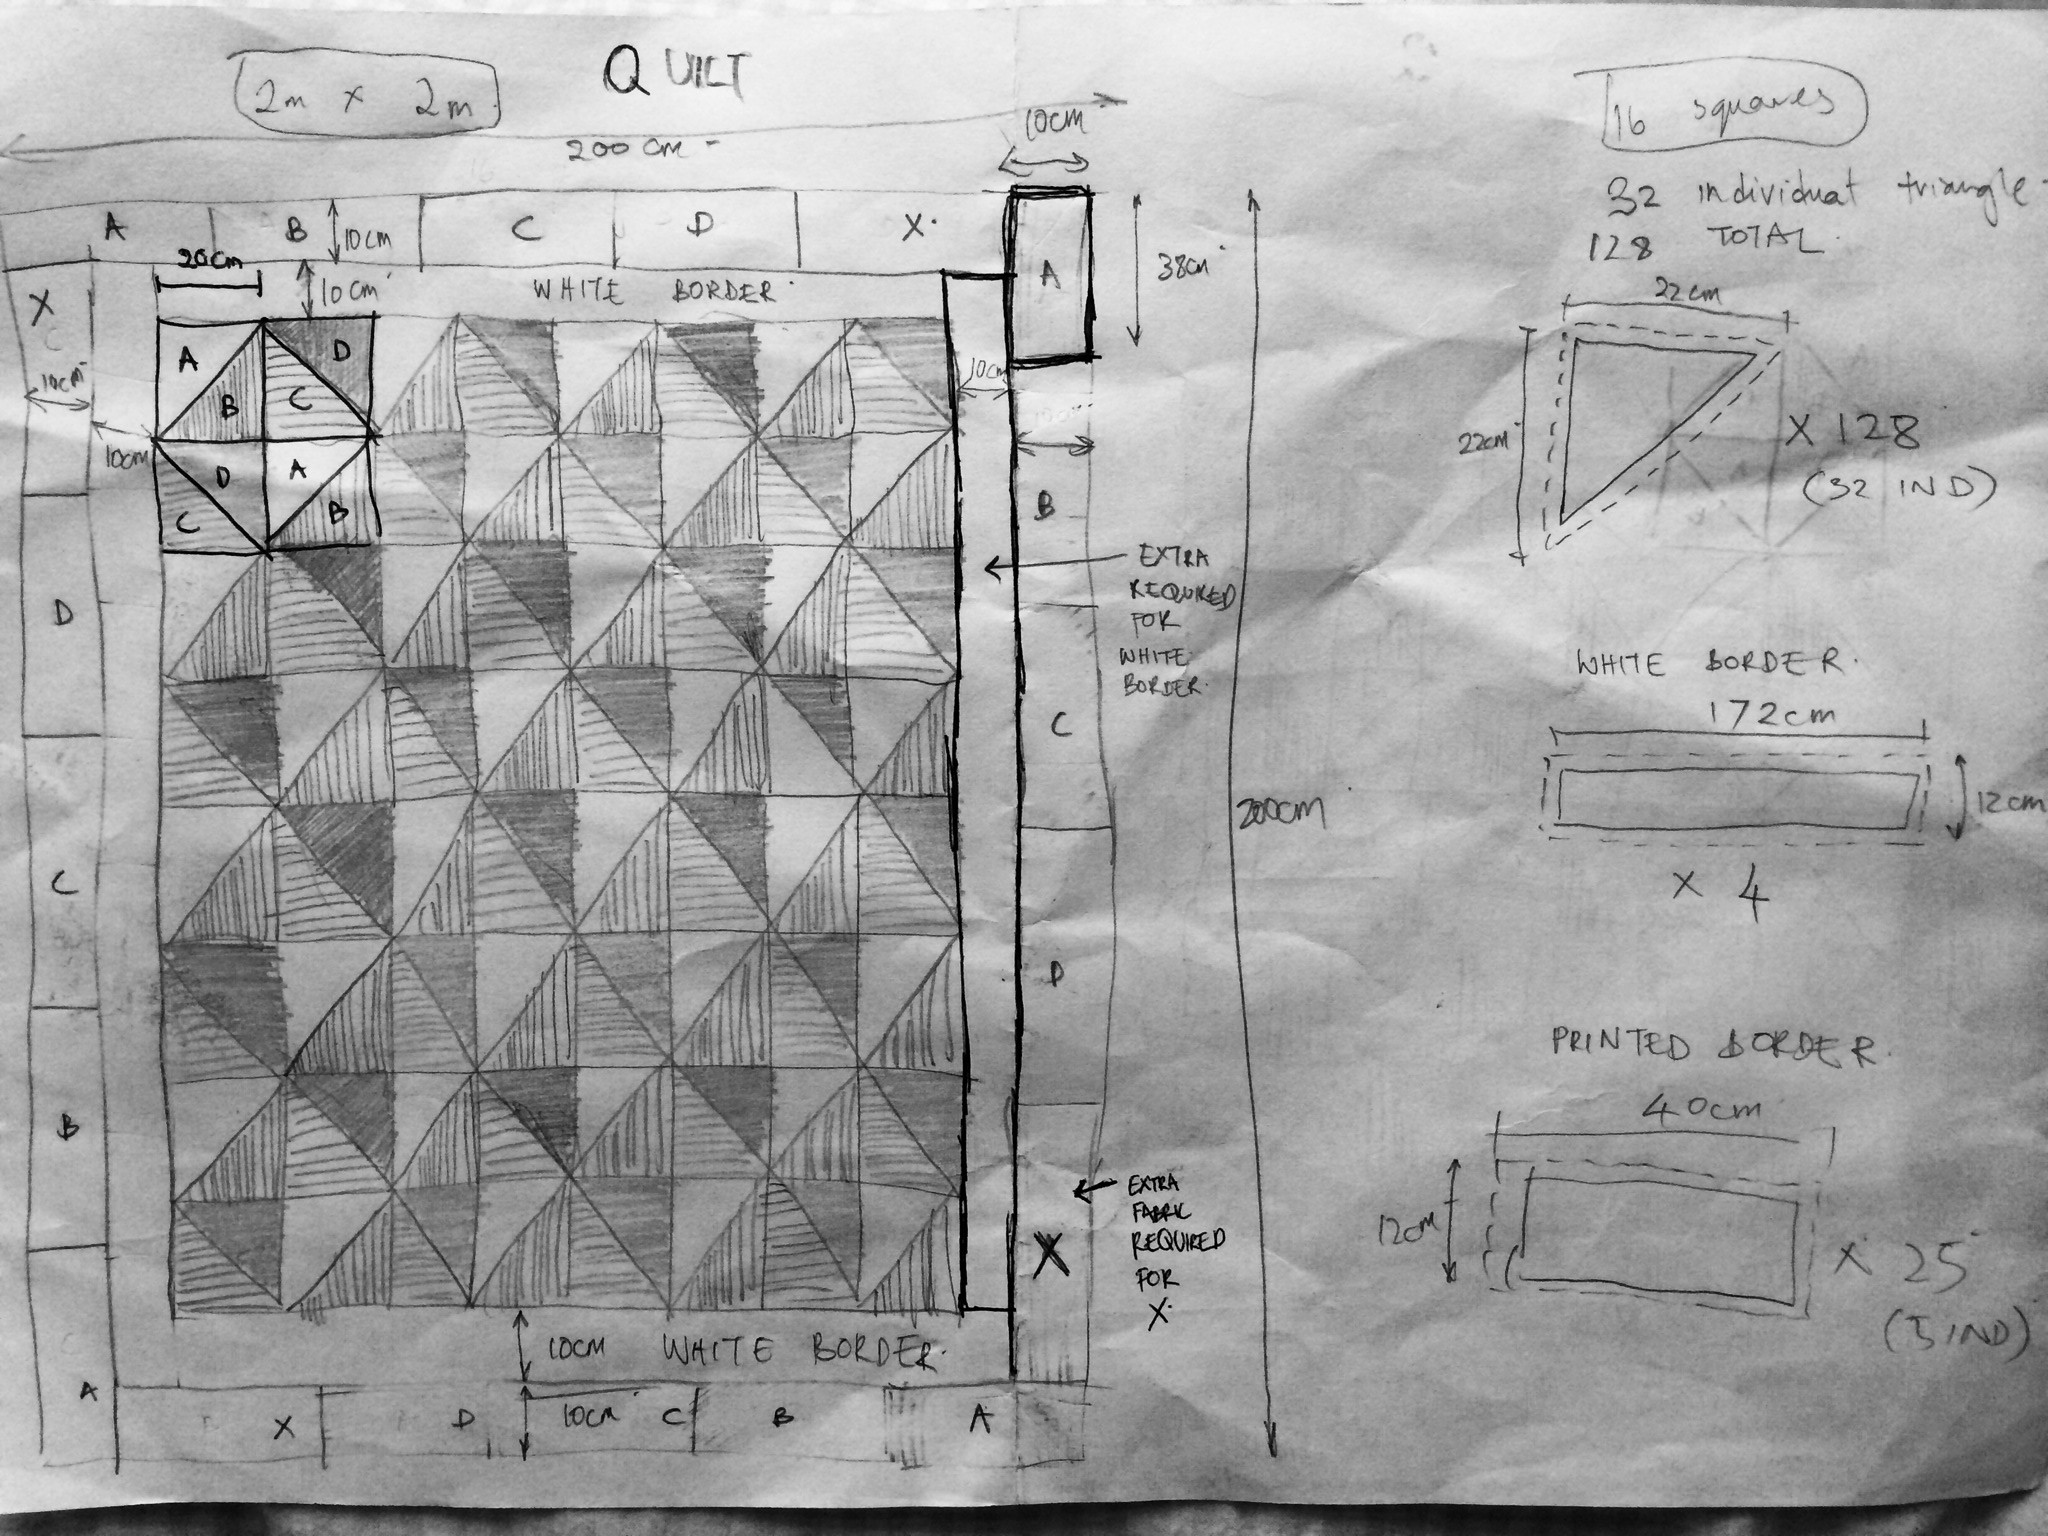 QUILT
2m x 2m
200cm
10cm
A
B
10cm
C
D
X
A
38cm
20cm
10cm
WHITE BORDER
X
10cm
10cm
A
D
B
C
D
A
C
B
10cm
B
EXTRA
REQUIRED
FOR
WHITE
BORDER.
D
C
200cm
C
D
B
EXTRA
FABRIC
REQUIRED
FOR
X
X
A
10cm WHITE BORDER.
X
D
10cm
C
B
A
16 squares
32 individual triangle
128 TOTAL
22cm
22cm
X 128
(32 IND)
WHITE BORDER.
172cm
12cm
X 4
PRINTED BORDER.
40cm
12cm
X 25
(5 IND)